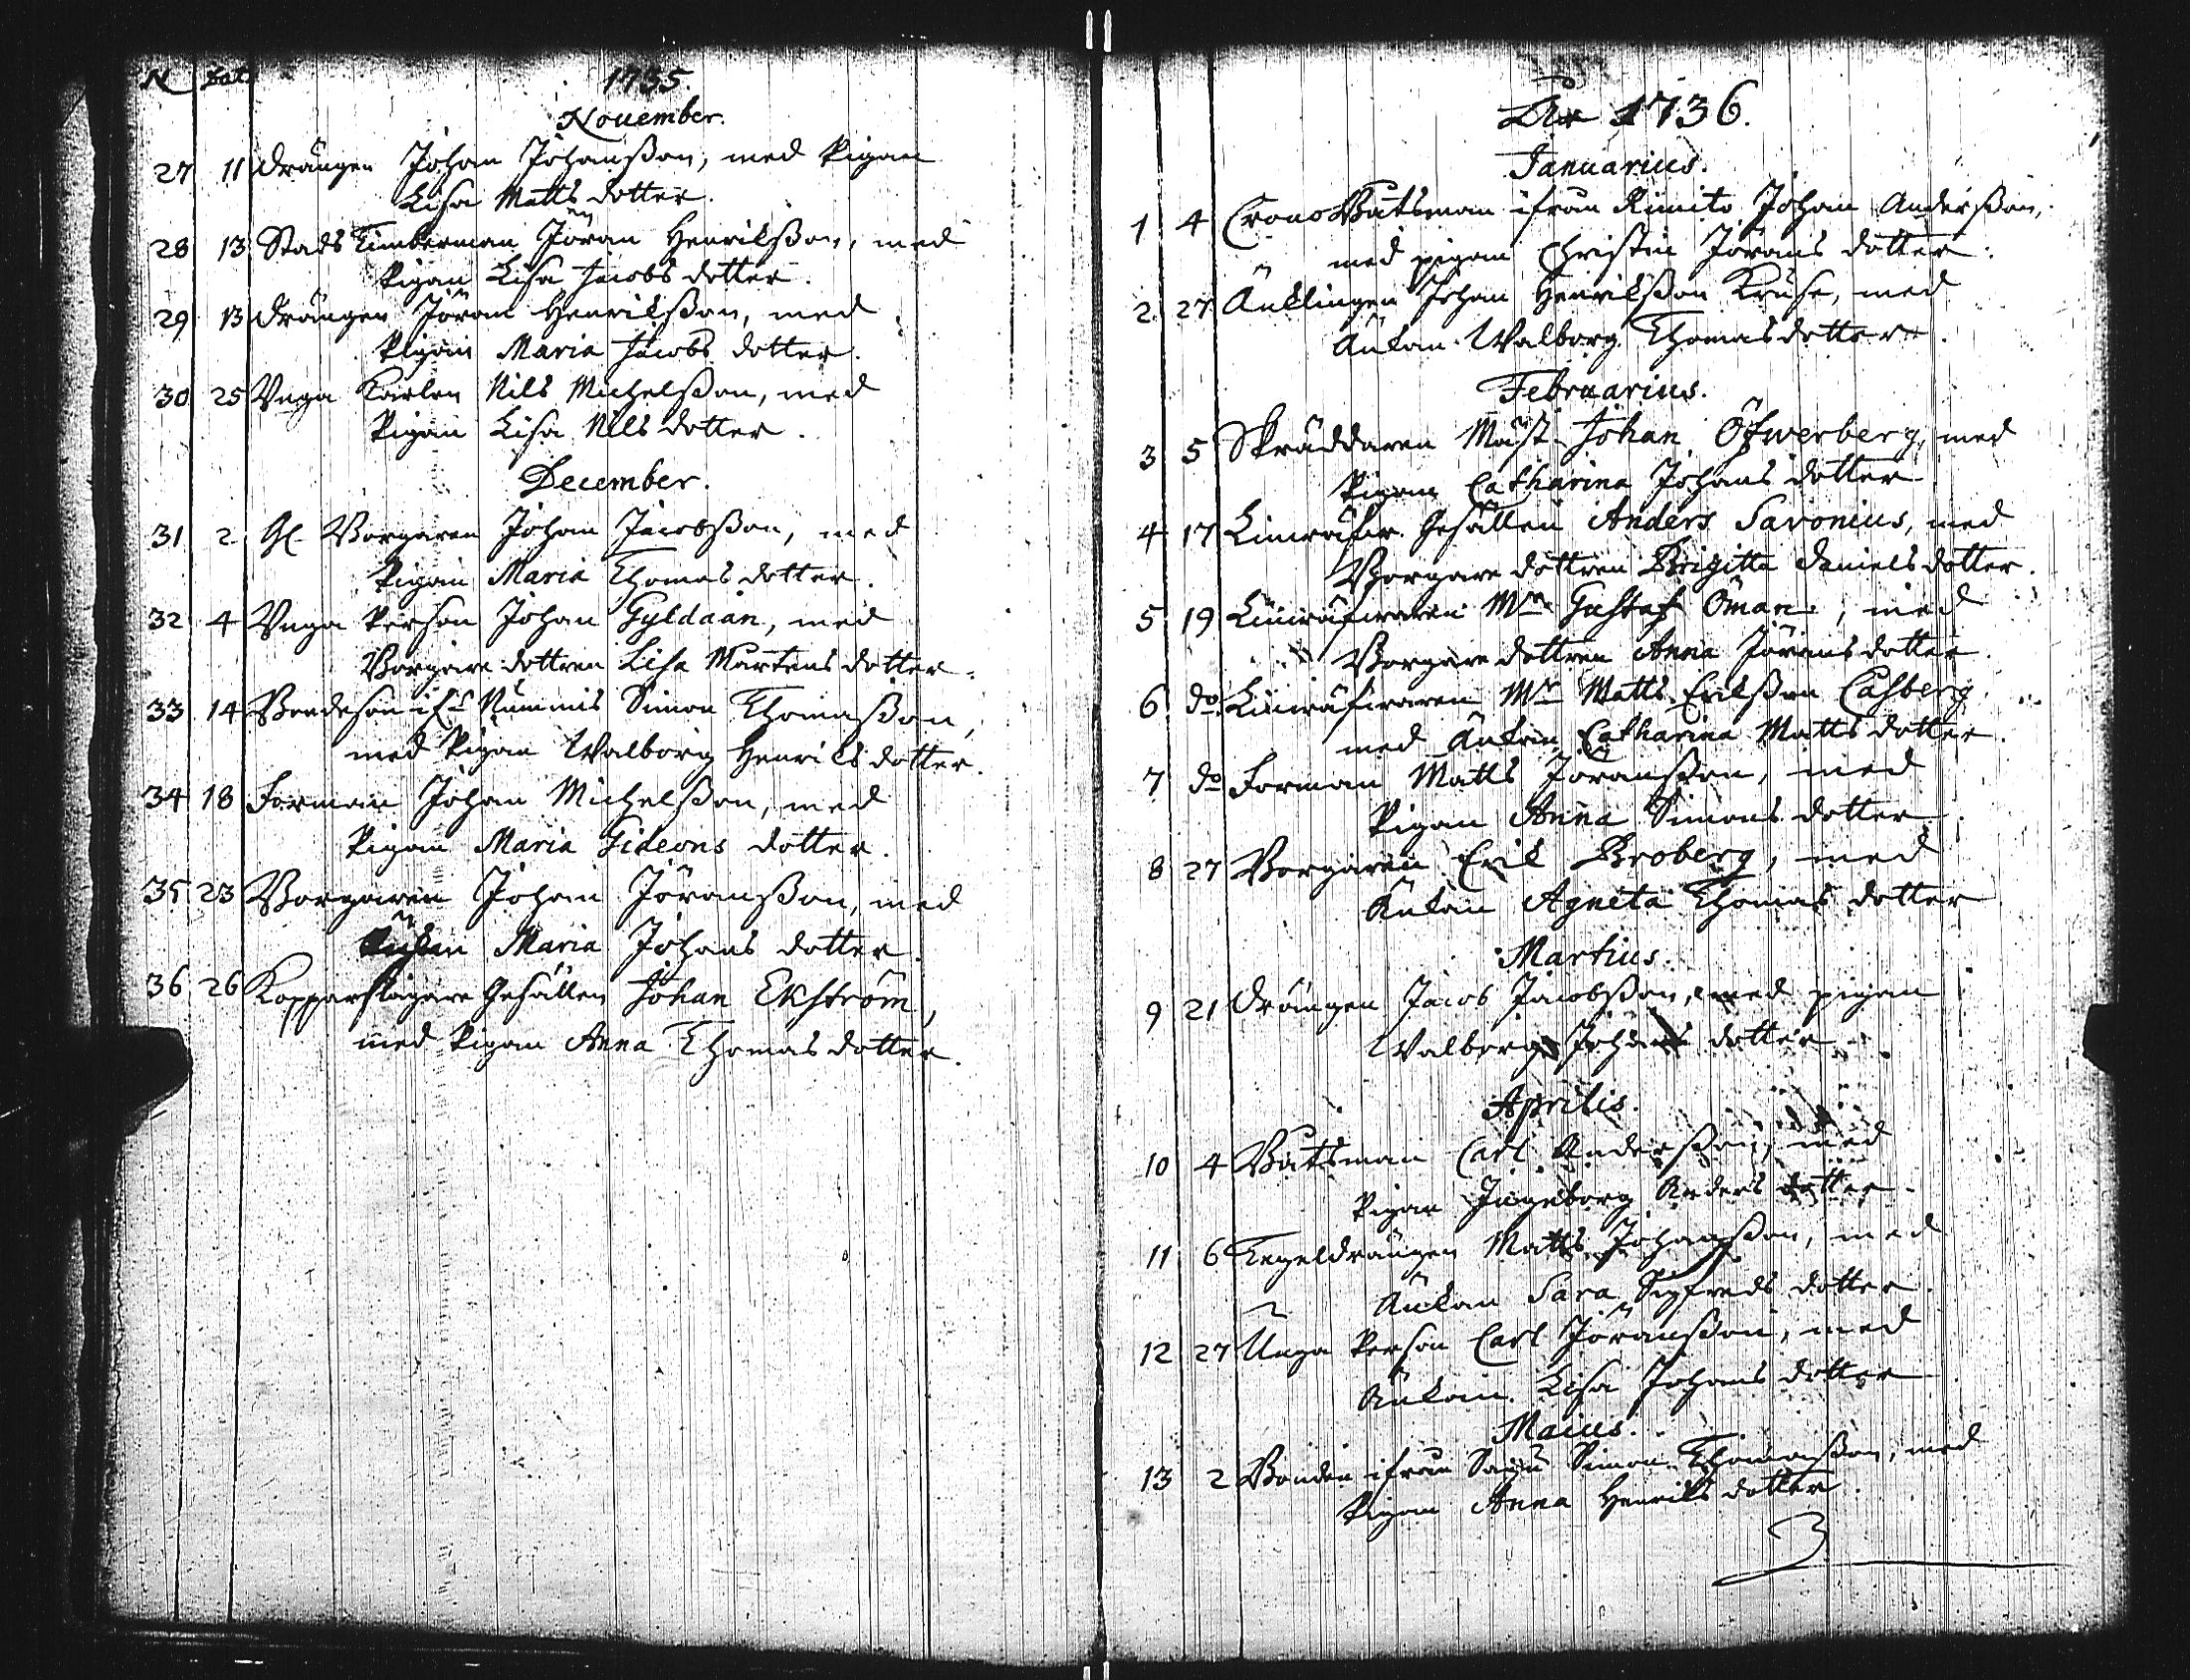 N Dat 1735.
November.
27 11 Drängen Johan Johansson, med Pigan
Lisa Matts dotter.
28 13 Stads Timberman Jöran Henrichsson, med
Pigan Lisa Jacobs dotter.
29 13 Drängen Jöran Henrichsson, med
Pigan Maria Jacobs dotter.
30 25 Unga Karlen Nils Michelsson, med
Pigan Lisa Nils dotter.
December.
31 2 Gl. Borgaren Johan Jacobsson, med
Pigan Maria Thomas dotter.
32 4 Unga Person Johan Gyldaan, med
Borgare dottren Lisa Mårtens dotter.
33 14 Bondeson ifr. Nummis Simon Thomasson,
med Pigan Walborg Henrichs dotter.
34 18 Forman Johan Michelsson, med
Pigan Maria Gideons dotter.
35 23 Borgaren Johan Jöransson, med
Maria Johans dotter.
36 26 Kopparslagare Gesällen Johan Ekström,
med Pigan Anna Thomas dotter.
År 1736.
Januarius.
1 4 Crono Båtsman ifrån Rimito Johan Andersson,
med pigan Christin Jörans dotter.
2 27 Änklingen Johan Henrichsson Kruse, med
Änkan Walborg Thomas dotter.
Februarius.
3 5 Skräddaren Mäst. Johan Öfwerberg, med
Pigan Catharina Johans dotter
4 17 Linwäfw. Gesällen Anders Savonius, med
Borgare dottren Brigitta Daniels dotter.
5 19 Linwäfwaren Mr Gustaf Öman, med
Borgare dottren Anna Jörans dotter.
6 do Linwäfwaren Mr Matts Erichsson Casberg
med Änkan Catharina Matts dotter.
7 do Forman Matts Jöransson, med
Pigan Anna Simons dotter
8 27 Borgaren Erik Broberg, med
Änkan Agneta Thomas dotter
Martius.
9 21 Drängen Jacob Jacobsson, med pigan
Walborg Johans dotter.
Aprilis.
10 4 Båtsman Carl Andersson, med
Pigan Ingeborg Anders dotter.
11 6 Tegeldrängen Matts Johansson, med
Änkan Sara Sigfreds dotter.
12 27 Unga Person Carl Jöransson, med
Änkan Lisa Johans dotter
Maius.
13 2 Bonden ifrån Sagu Simon Thomasson, med
Pigan Anna Henrichs dotter.